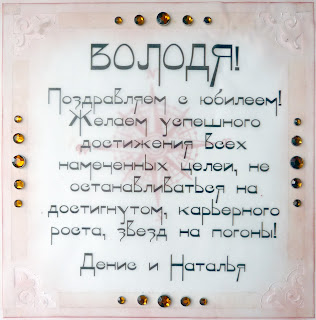 ВОЛОДЯ!
Поздравляем с юбилеем!
Желаем успешного
достижения всех
намеченных целей, не
останавливаться на
достигнутом, карьерного
роста, звезд на погоны!
Денис и Наталья